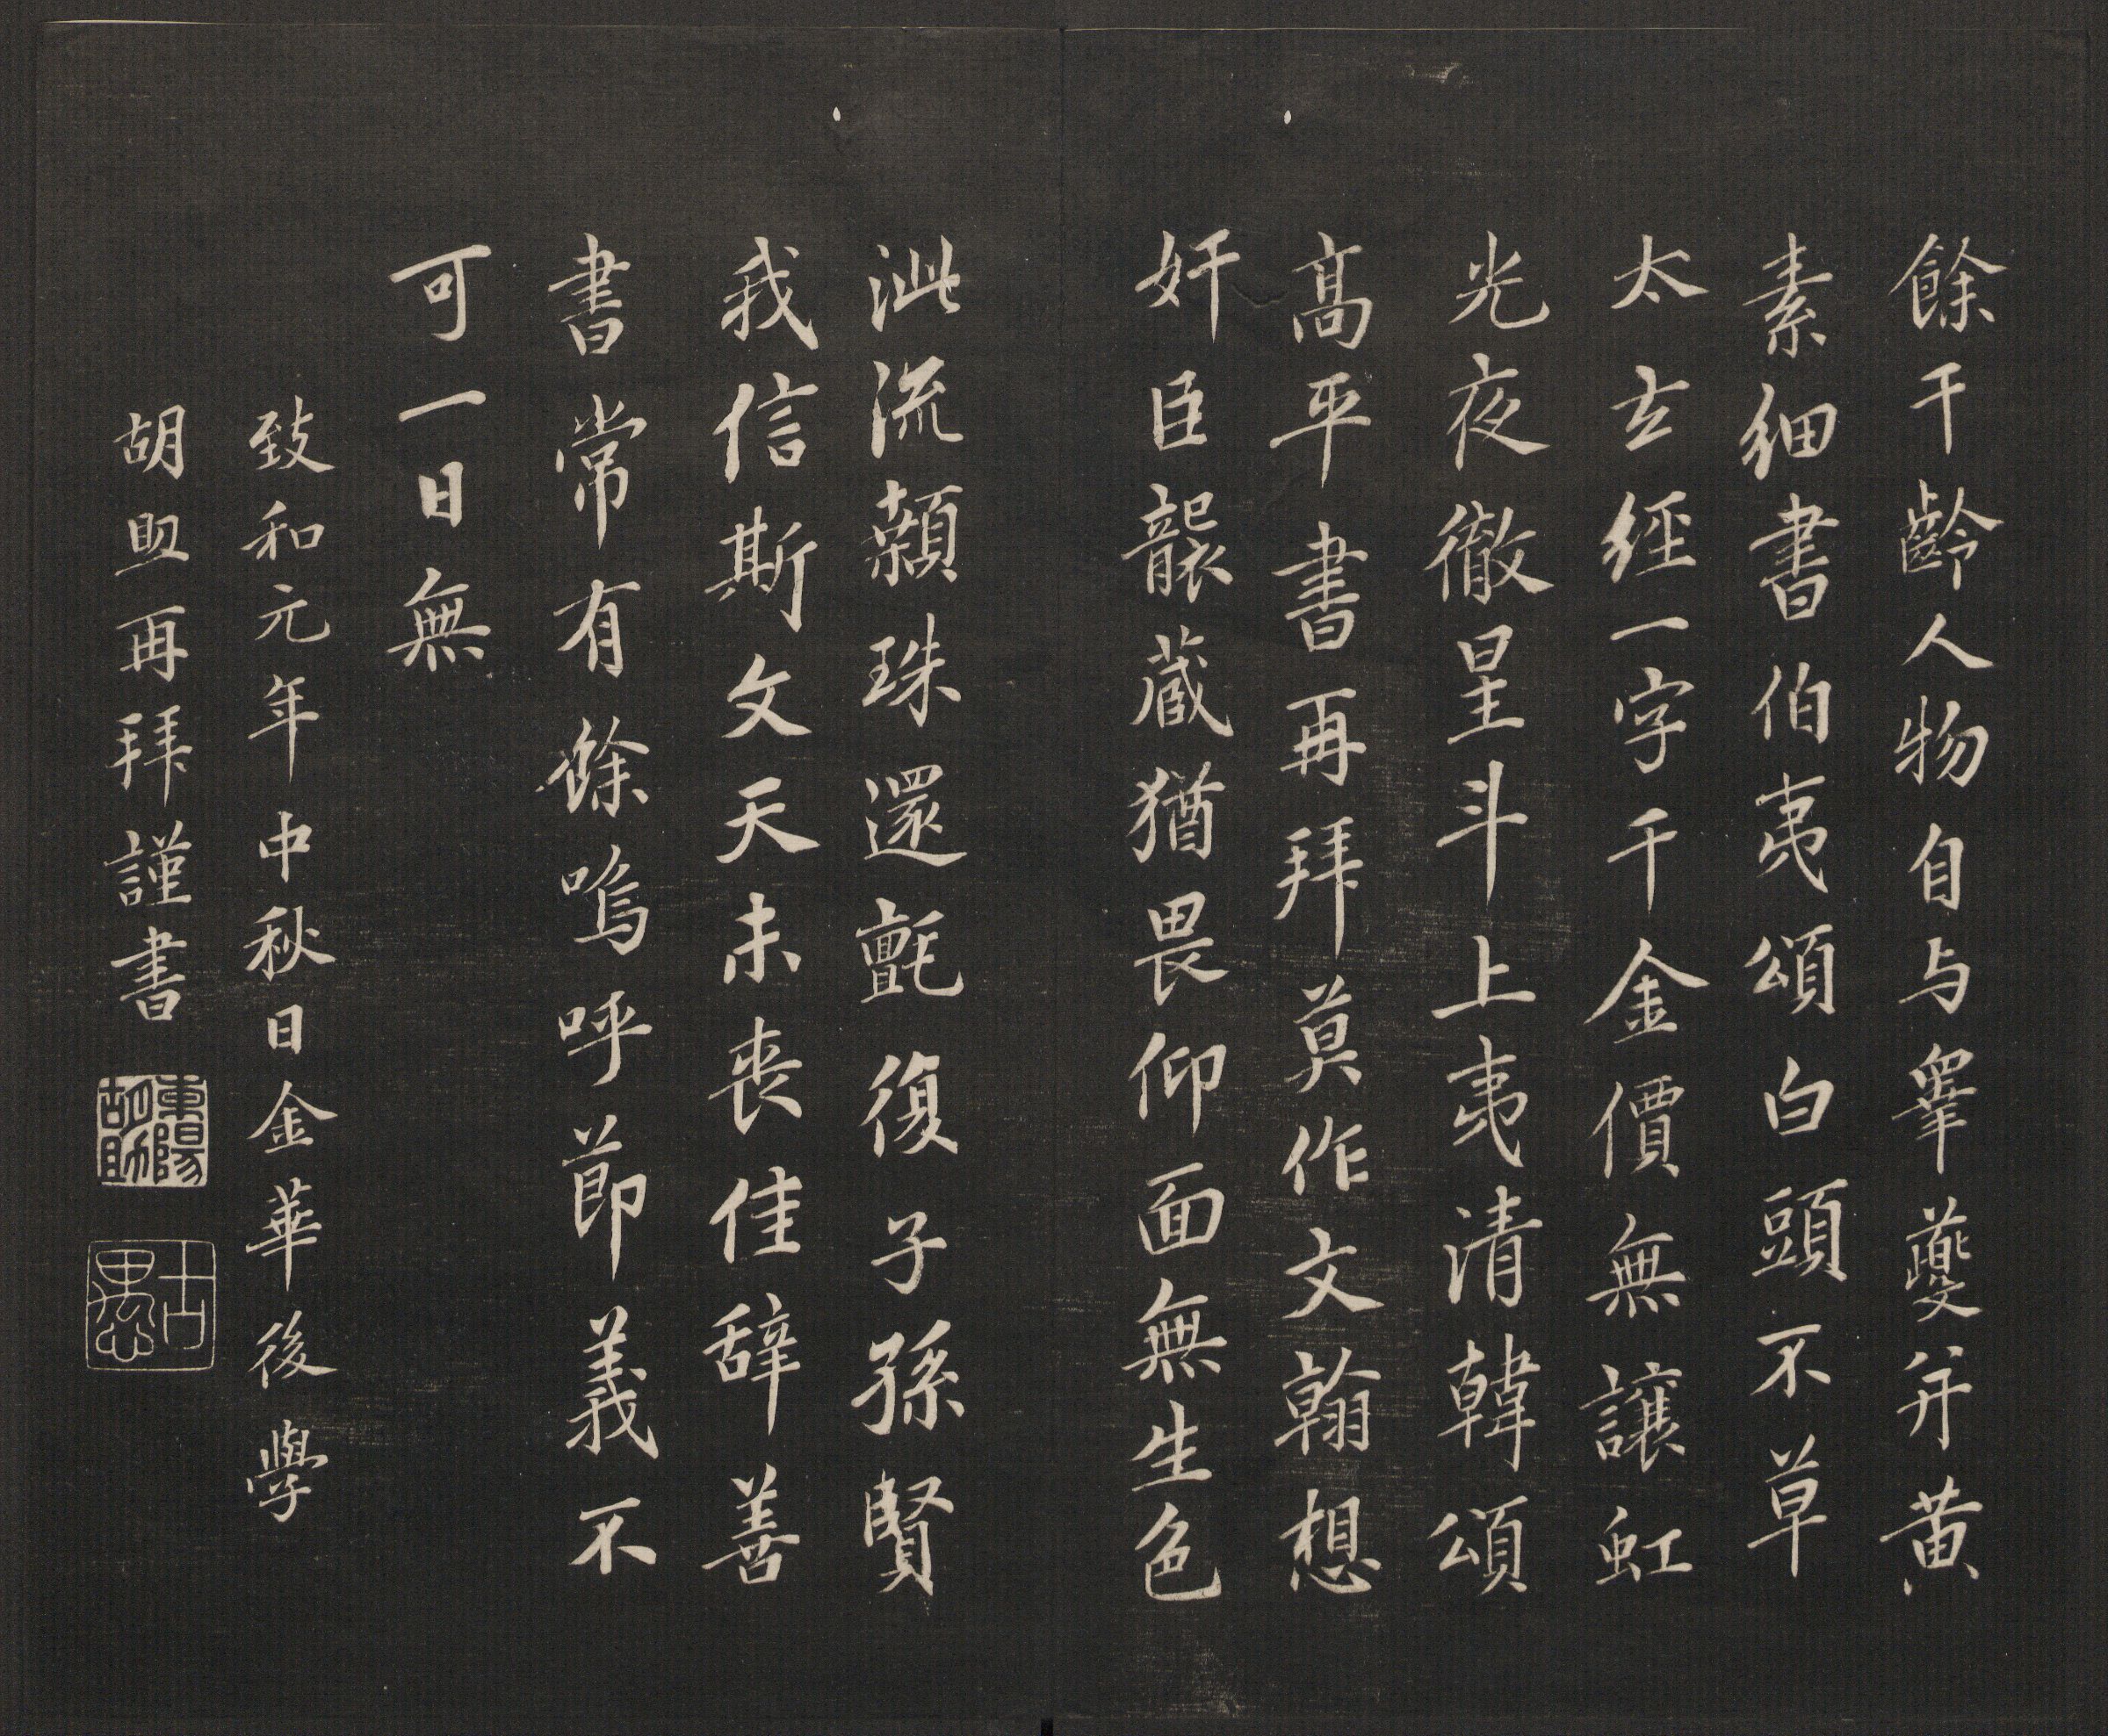 餘干齡人物自与睾夔并黃
素細書伯夷頌白頭不草
太玄經一字千金價無讓虹
光夜徹星斗上夷清韓頌
髙平書再拜莫作文翰想
奸臣襲蔵猶畏仰面無生色
泚流顙珠還氊復子孫賢
我信斯文天未丧佳辞善
書常有餘嗚呼節義不
可一日無
致和元年中秋日金華後學
胡助再拜謹書
東陽胡助
古愚